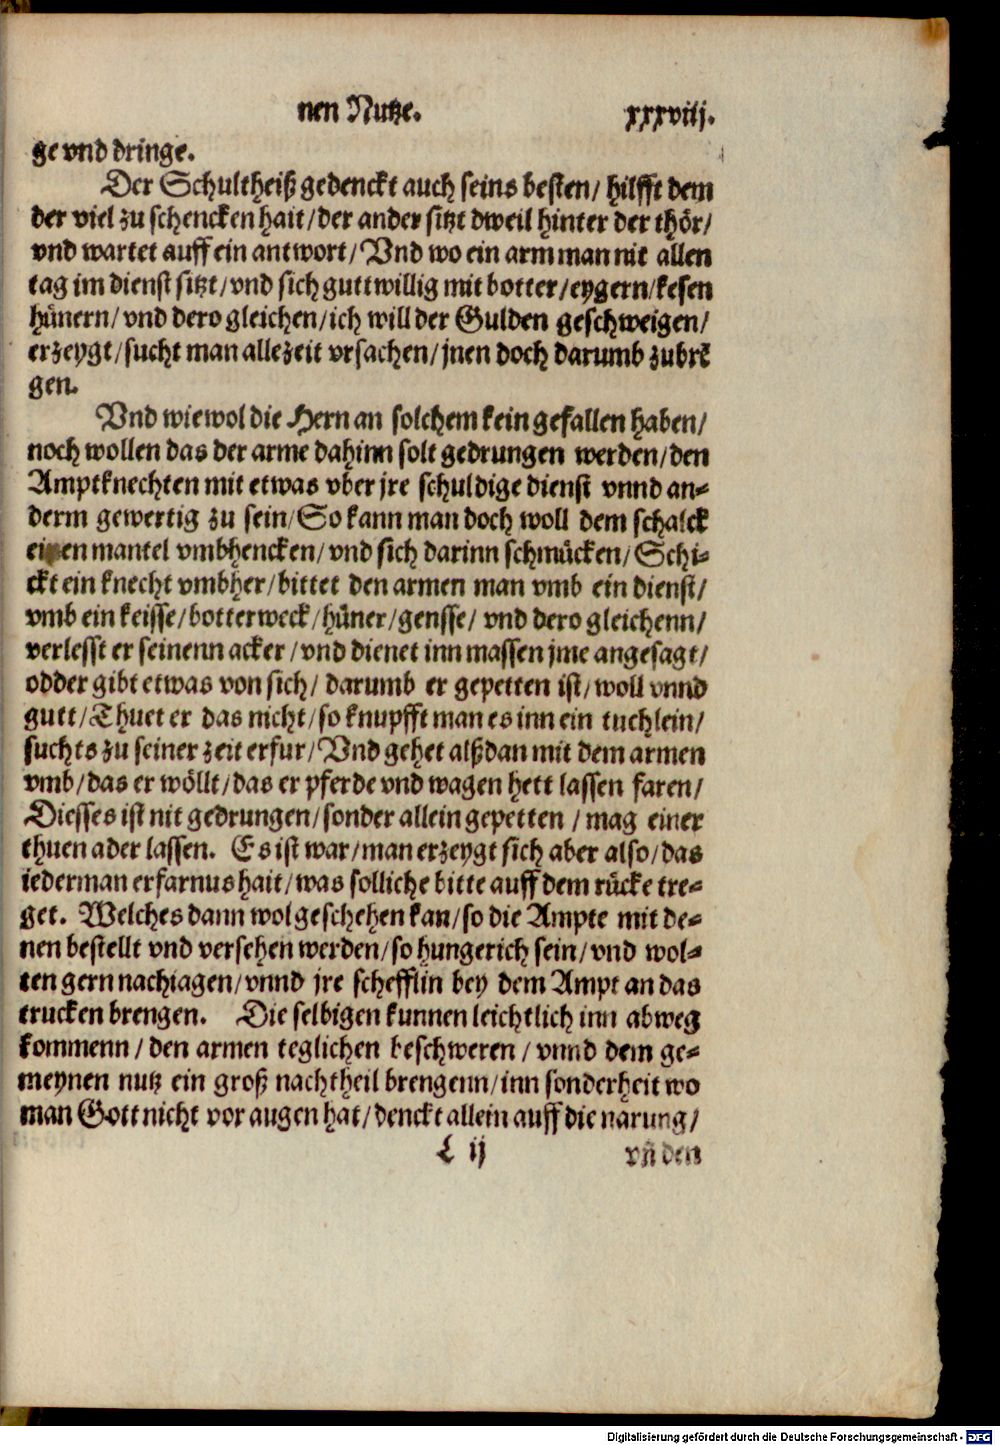 nen Nutze. xxxviij.
ge vnd dringe.
Der Schultheiß gedenckt auch seins besten/ hilfft dem
der viel zu schencken hait/der ander sitzt dweil hinter der thör/
vnd wartet auff ein antwort/Vnd wo ein arm man nit allen
tag im dienst sitzt/vnd sich guttwillig mit botter/eygern/kesen
hünern/vnd dero gleichen/ich will der Gulden geschweigen/
erzeygt/sucht man allezeit vrsachen/jnen doch darumb zubrē
gen.
Vnd wiewol die Hern an solchem kein gefallen haben/
noch wollen das der arme dahinn solt gedrungen werden/den
Amptknechten mit etwas vber jre schuldige dienst vnnd an-
derm gewertig zu sein/So kann man doch woll dem schalck
einen mantel vmbhencken/vnd sich darinn schmücken/Schi-
ckt ein knecht vmbher/bittet den armen man vmb ein dienst/
vmb ein keisse/botterweck/hüner/gensse/ vnd dero gleichenn/
verlesst er seinenn acker/vnd dienet inn massen jme angesagt/
odder gibt etwas von sich/ darumb er gepetten ist/woll vnnd
gutt/Thuet er das nicht/so knupfft man es inn ein tuchlein/
suchts zu seiner zeit erfur/Vnd gehet alßdan mit dem armen
vmb/das er wöllt/das er pferde vnd wagen hett lassen faren/
Diesses ist nit gedrungen/sonder allein gepetten/mag einer
thuen ader lassen. Es ist war/man erzeygt sich aber also/das
iederman erfarnus hait/was solliche bitte auff dem rücke tre-
get. Welches dann wol geschehen kan/so die Ampte mit de-
nen bestellt vnd versehen werden/so hungerich sein/vnd wol-
ten gern nachiagen/vnnd jre schefflin bey dem Ampt an das
trucken brengen. Die selbigen kunnen leichtlich inn abweg
kommenn/den armen teglichen beschweren/vnnd dem ge-
meynen nutz ein groß nachtheil brengenn/inn sonderheit wo
man Gott nicht vor augen hat/denckt allein auff die narung/
L ij vñ den
Digitalisierung gefördert durch die Deutsche Forschungsgemeinschaft - DFG